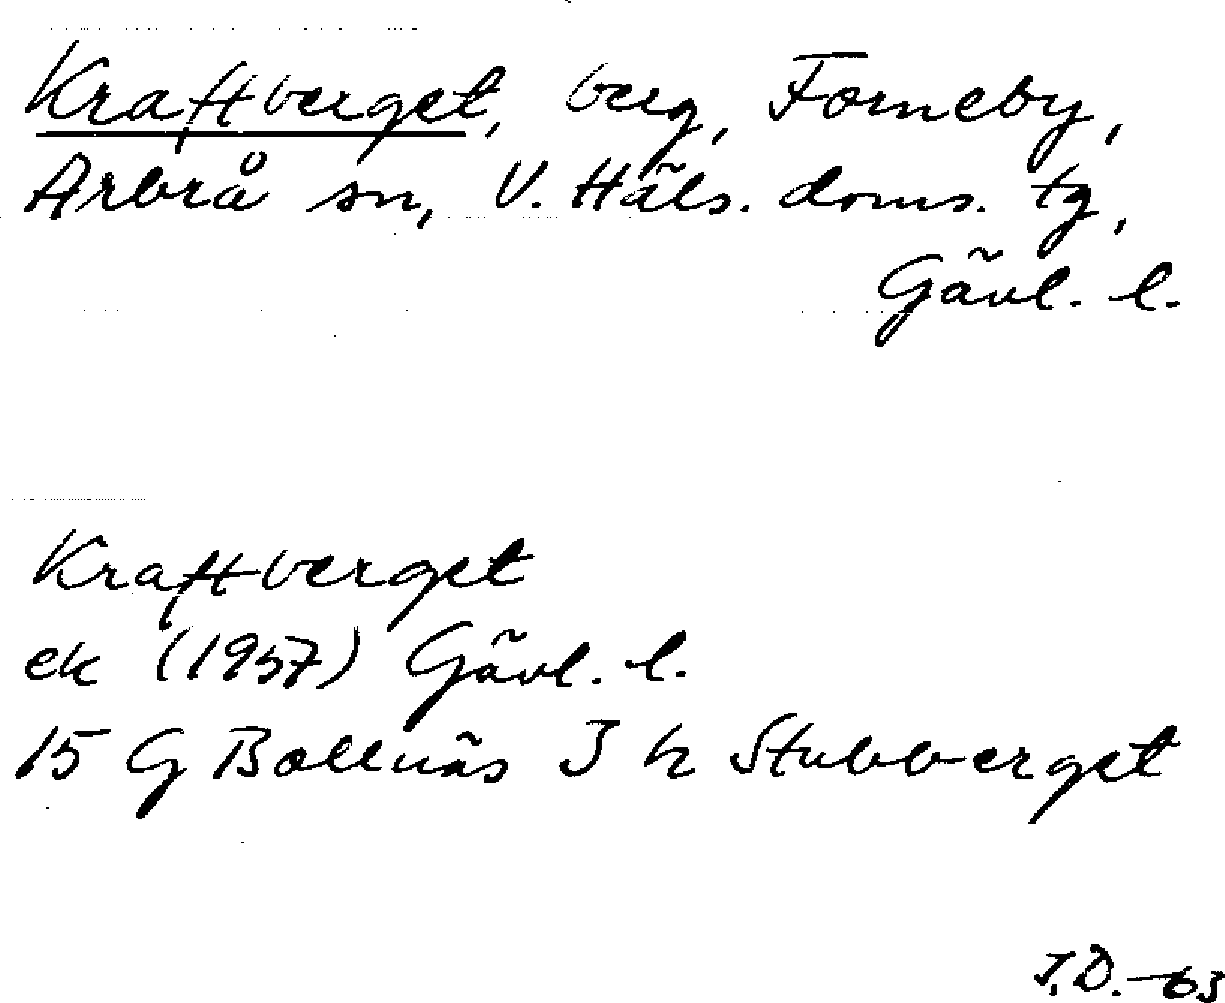 Kraftberget, berg, Forneby,
Arbrå sn, V. Häls. doms. tg,
Gävl. l.
Kraftberget
ek (1957) Gävl. l.
15 G Bollnäs 3 h Stubberget
J.D. -63